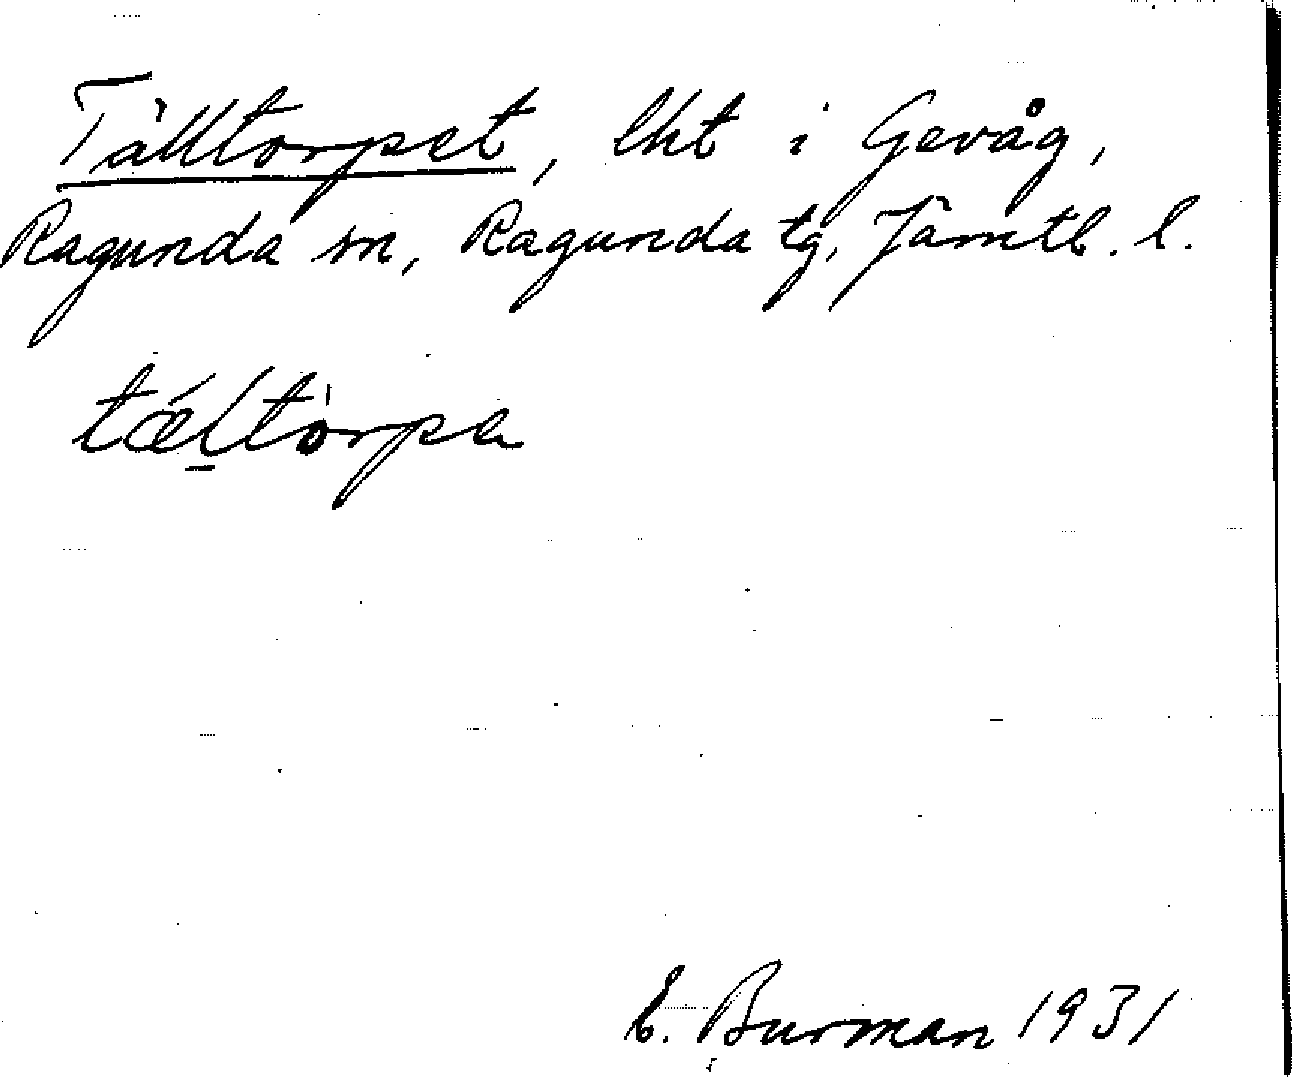 Tälltorpet, lht i Gevåg,
Ragunda sn, Ragunda tg, Jämtl. l.
tæ̀ltòrpa
E. Burman 1931